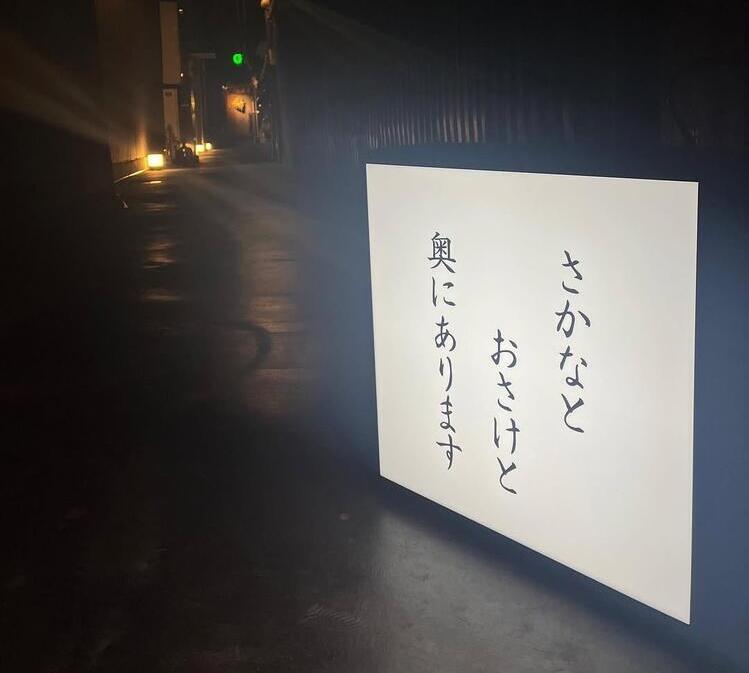 さかなと
おさけと
奥にあります